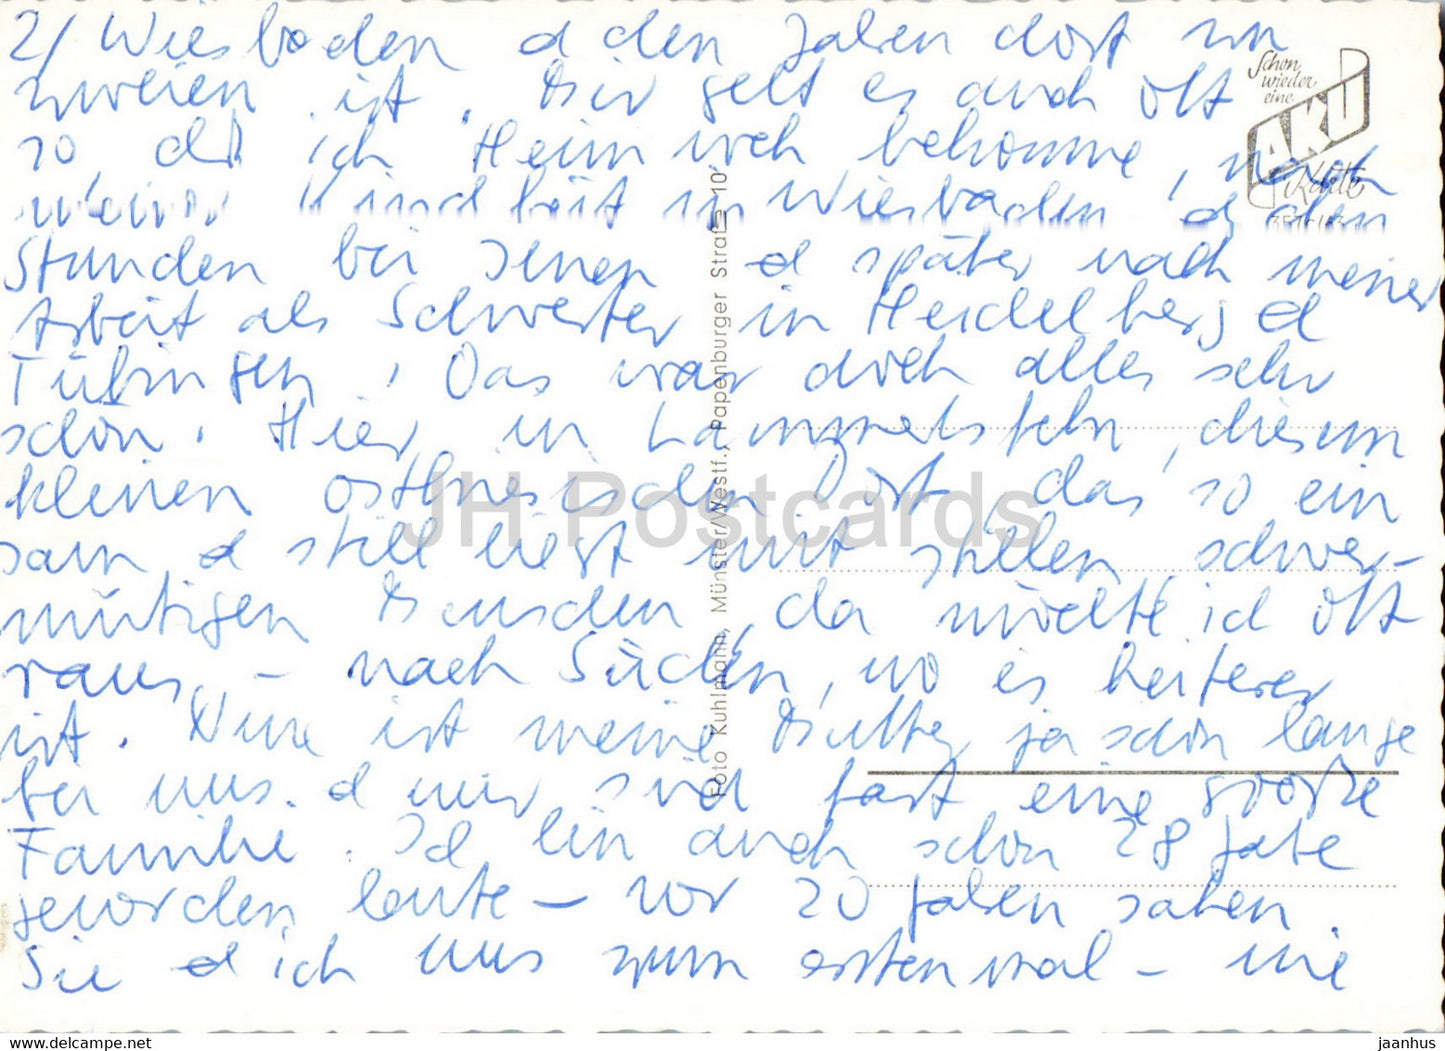 2/ Wiesbaden & den Jahren dort nun
zweien ist. Mir geht es auch oft
so, daß ich Heimweh bekomme, nach
meiner Kindheit in Wiesbaden & den
Stunden bei Ihnen & später nach meiner
Arbeit als Schwester in Heidelberg &
Tübingen. Das war doch alles sehr
schön. Hier, in Lammertsfehn, diesem
kleinen ostfriesischen Ort, das so ein
sam & still liegt mit stillen schwer-
mütigen Menschen, da möchte ich oft
raus, – nach Süden, wo es heiterer
ist. Nun ist meine Mutter ja schon lange
bei uns & wir sind fast eine große
Familie. Ich bin auch schon 28 Jahre
geworden heute – vor 20 Jahren sahen
Sie & ich uns zum erstenmal – wie
Schon
wieder
eine
AKU
Karte
Foto Kuhlmann, Münster/Westf., Papenburger Straße 10
JH Postcards
Buy now on: www.jhpostcards.com
jaanhus